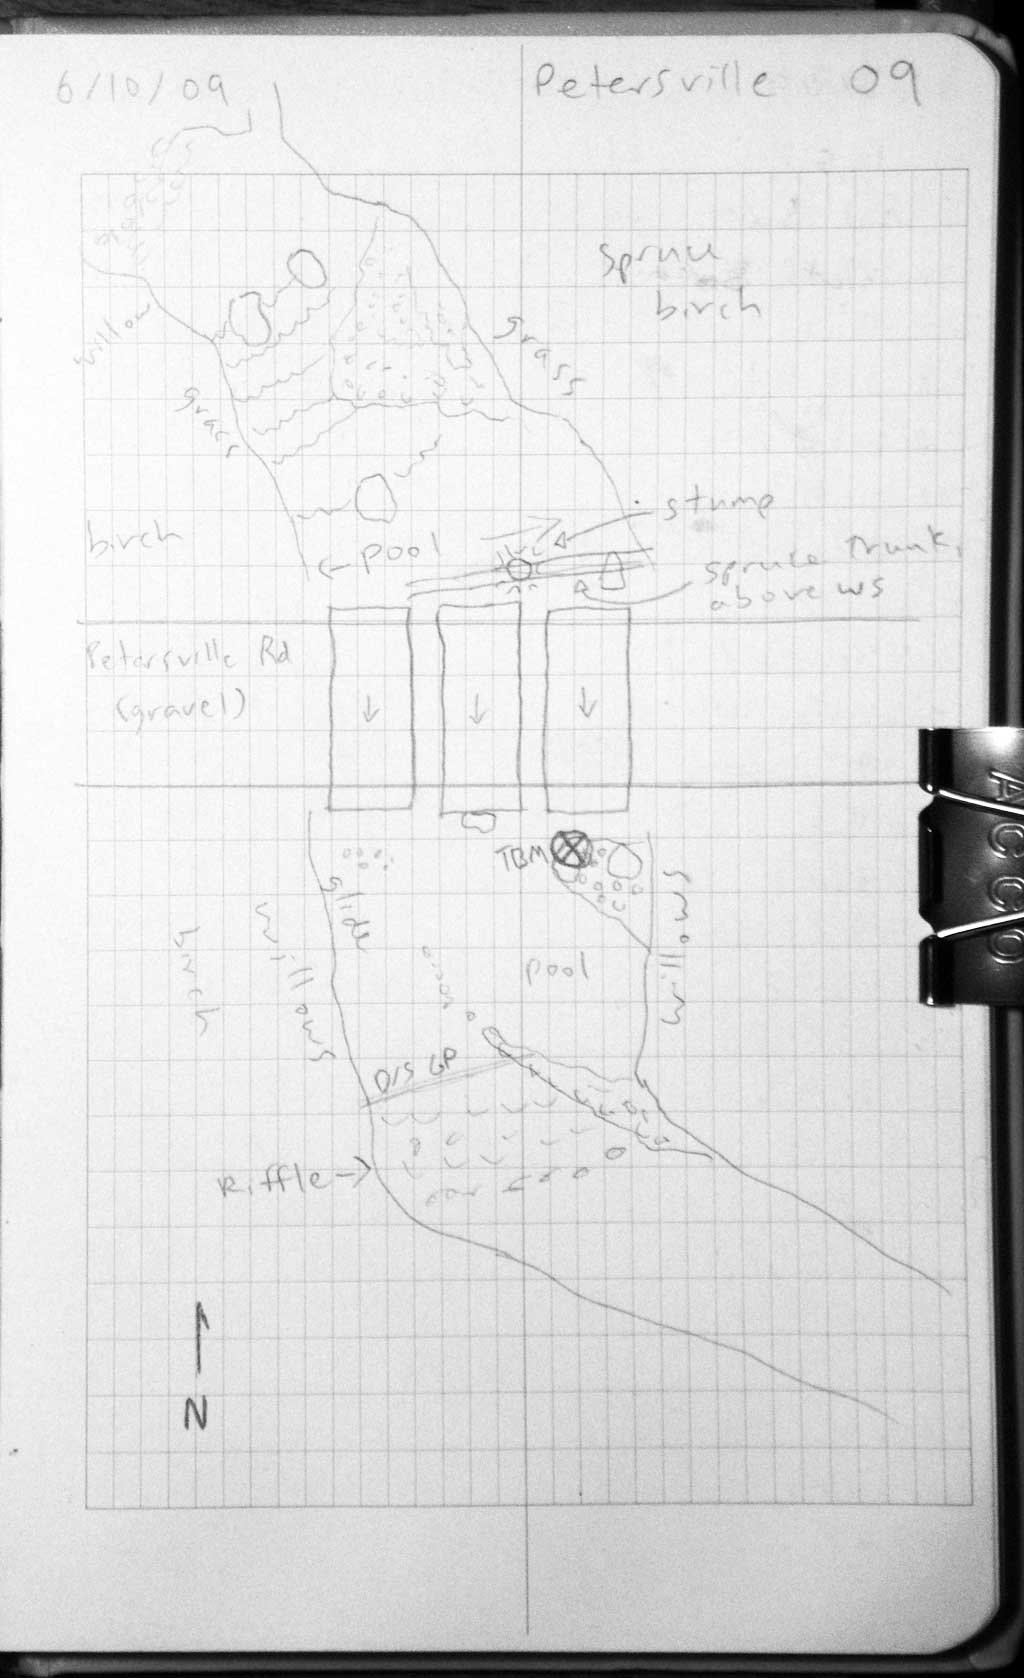 6/10/09
Petersville 09
spruce
birch
willow
grass
grass
birch
← pool
stump
spruce trunk,
above ws
Petersville Rd
(gravel)
TBM
glide
willows
birch
willows
pool
D/S GP
Riffle →
N
ACCO